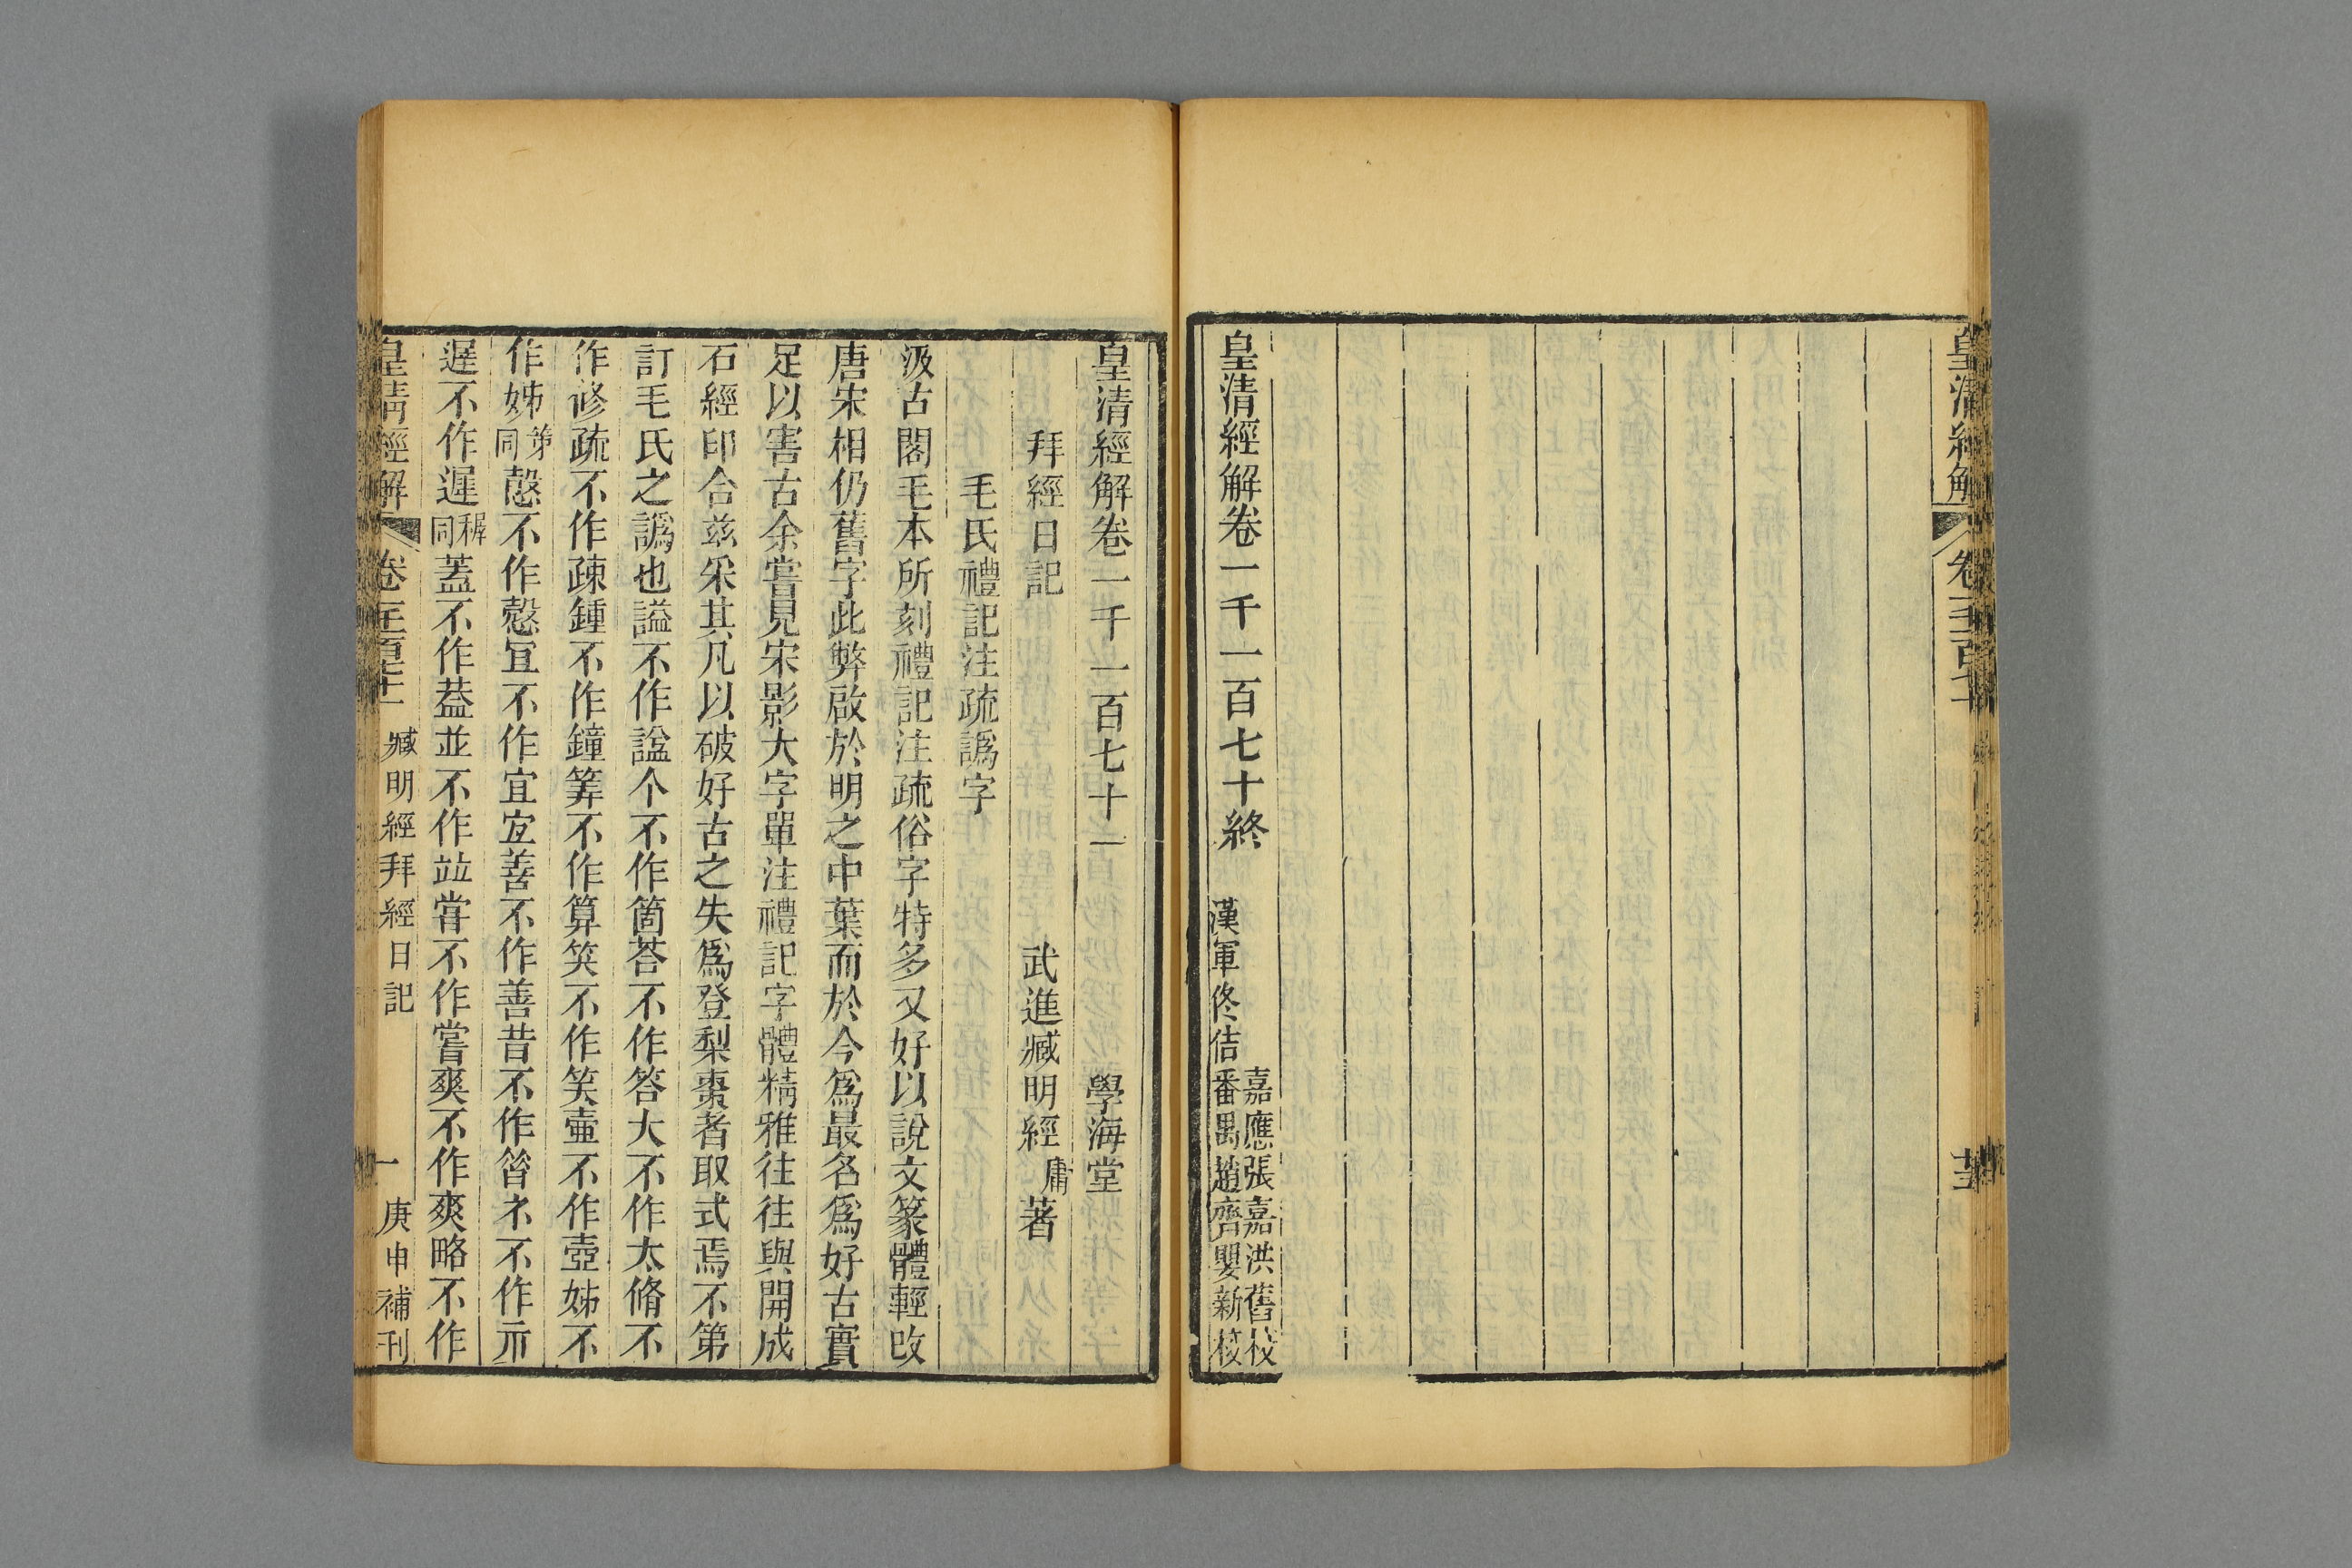 皇清經解
卷一千一百七十
皇清經解卷一千一百七十終
漢軍佟佶
嘉應張嘉洪舊校
番禺趙齊嬰新校
皇清經解卷一千一百七十一 學海堂
拜經日記 武進臧明經庸著
毛氏禮記注疏譌字
汲古閣毛本所刻禮記注疏俗字特多又好以說文篆體輕改
唐宋相仍舊字此弊啟於明之中葉而於今爲最名爲好古實
足以害古余嘗見宋影大字單注禮記字體精雅往往與開成
石經印合兹采其凡以破好古之失爲登梨棗者取式焉不第
訂毛氏之譌也謚不作諡个不作箇荅不作答大不作太脩不
作修疏不作疎鍾不作鐘筭不作算笑不作笑壷不作壺姊不
作姊第同慤不作愨冝不作宜宐善不作善昔不作㫺礻不作示
遟不作遲穉同蓋不作葢並不作竝甞不作嘗爽不作爽略不作
皇清經解 卷一千一百七十一 臧明經拜經日記 一 庚申補刊